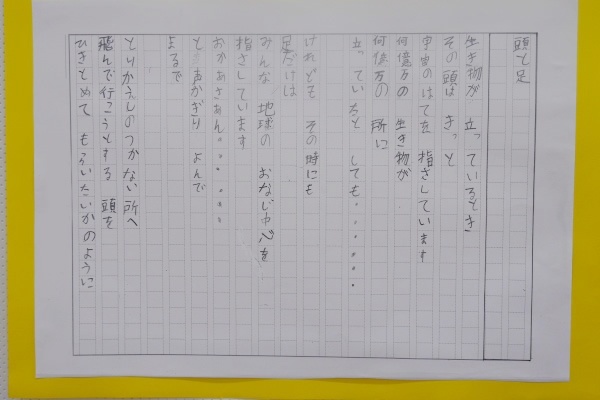 頭と足
生き物が 立っているとき
その頭は きっと
宇宙のはてを 指さしています
何億万の 生き物が
何億万の 所に
立っていると しても・・・・・・
けれども その時にも
足だけは
みんな 地球の おなじ中心を
指さしています
おかあさあん・・・・・・
と 声かぎり よんで
まるで
とりかえしのつかない所へ
飛んで行こうとする 頭を
ひきとめて もらいたいかのように